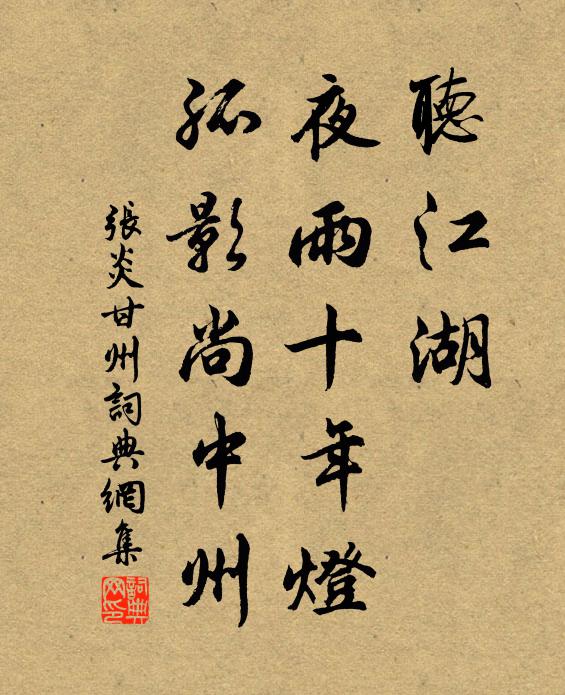 聽江湖
夜雨十年燈
孤影尚中州
張炎甘州詞典網集
詞典网印